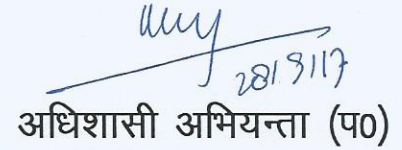 28/9/17
अधिशासी अभियन्ता (प०)